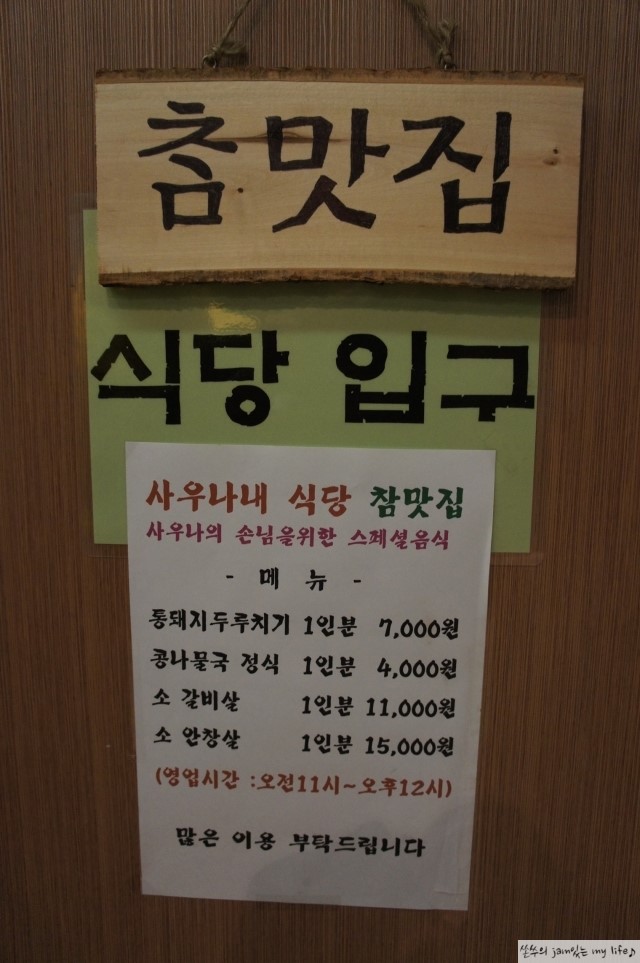 참맛집
식당 입구
사우나내 식당 참맛집
사우나의 손님을위한 스페셜음식
- 메 뉴 -
통돼지두루치기 1인분 7,000원
콩나물국 정식 1인분 4,000원
소 갈비살 1인분 11,000원
소 안창살 1인분 15,000원
(영업시간 :오전11시~오후12시)
많은 이용 부탁드립니다
쏜쑤의 jam있는 my life♪